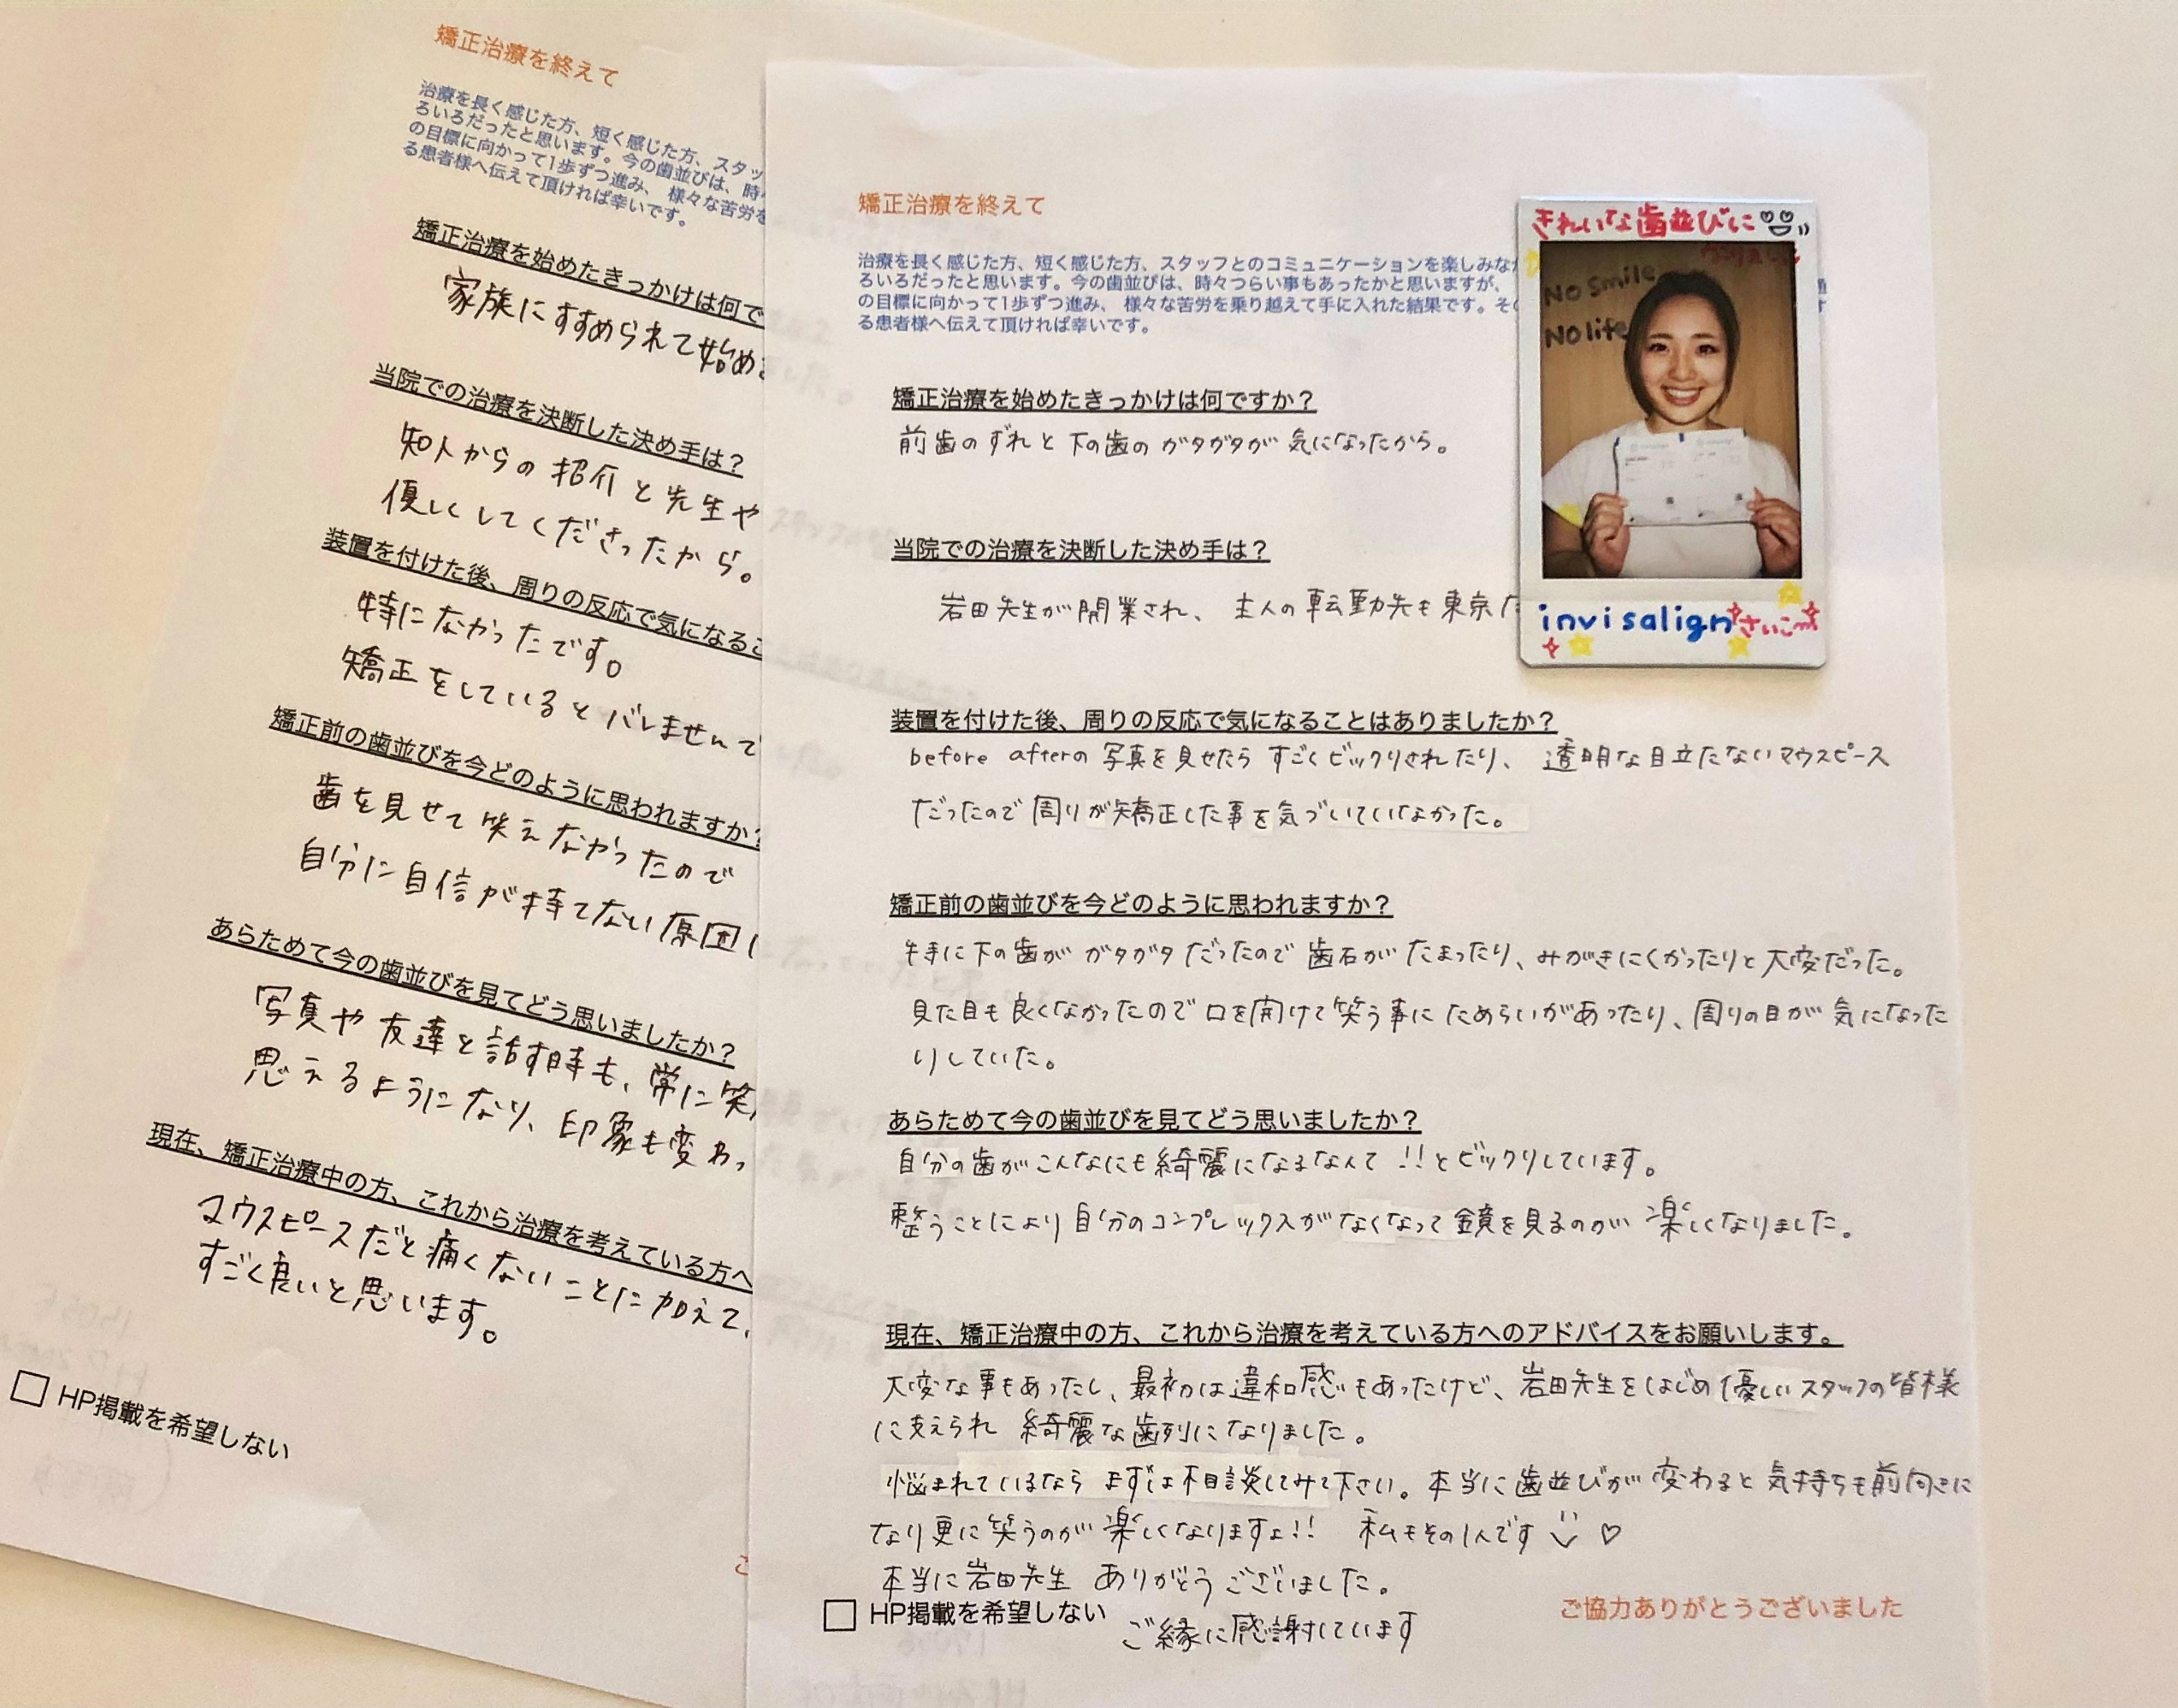 矯正治療を終えて
治療を長く感じた方、短く感じた方、スタッ
ろいろだったと思います。今の歯並びは、時
の目標に向かって1歩ずつ進み、様々な苦労を
る患者様へ伝えて頂ければ幸いです。
矯正治療を始めたきっかけは何で
家族にすすめられて始め
当院での治療を決断した決め手は?
知人からの紹介と先生や
優しくしてくださったから。
装置を付けた後、周りの反応で気になるこ
特になかったです。
矯正をしているとバレませんで
矯正前の歯並びを今どのように思われますか?
歯を見せて笑えなかったので
自分に自信が持てない原因
あらためて今の歯並びを見てどう思いましたか?
写真や友達と話す時も、常に笑
思えるようになり、印象も変わっ
現在、矯正治療中の方、これから治療を考えている方へ
マウスピースだと痛くないことに加えて、
すごく良いと思います。
HP掲載を希望しない
矯正治療を終えて
治療を長く感じた方、短く感じた方、スタッフとのコミュニケーションを楽しみな
ろいろだったと思います。今の歯並びは、時々つらい事もあったかと思いますが、
の目標に向かって1歩ずつ進み、様々な苦労を乗り越えて手に入れた結果です。そ
る患者様へ伝えて頂ければ幸いです。
矯正治療を始めたきっかけは何ですか?
前歯のずれと下の歯のガタガタが気になったから。
当院での治療を決断した決め手は?
岩田先生が開業され、主人の転勤先も東京
装置を付けた後、周りの反応で気になることはありましたか?
before afterの写真を見せたらすごくビックリされたり、透明な目立たないマウスピース
だったので周りが矯正した事を気づいていなかった。
矯正前の歯並びを今どのように思われますか?
特に下の歯がガタガタだったので歯石がたまったり、みがきにくかったりと大変だった。
見た目も良くなかったので口を開けて笑う事にためらいがあったり、周りの目が気になった
りしていた。
あらためて今の歯並びを見てどう思いましたか?
自分の歯がこんなにも綺麗になるなんて!!とビックリしています。
整うことにより自分のコンプレックスがなくなって鏡を見るのが楽しくなりました。
現在、矯正治療中の方、これから治療を考えている方へのアドバイスをお願いします。
大変な事もあったし、最初は違和感もあったけど、岩田先生をはじめ優しいスタッフの皆様
に支えられ綺麗な歯列になりました。
悩まれているならまずは相談してみて下さい。本当に歯並びが変わると気持ちも前向きに
なり更に笑うのが楽しくなりますよ!! 私もその1人です♡
本当に岩田先生ありがとうございました。
HP掲載を希望しない
ご縁に感謝しています
ご協力ありがとうございました
きれいな歯並びに
No Smile
No life
invisalign さいこー